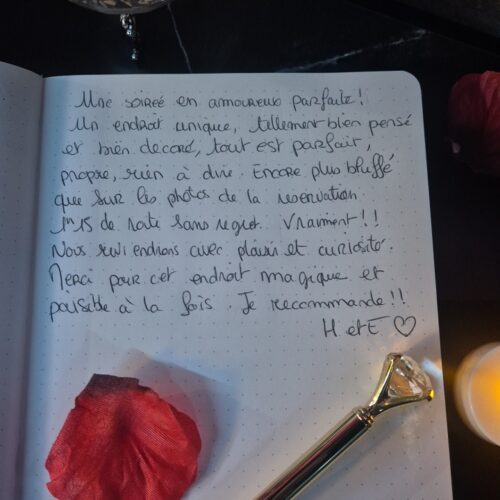 Une soireé en amoureux parfaite !
Un endroit unique, tellement bien pensé
et bien decoré, tout est parfait,
propre, rien à dire. Encore plus bluffé
que sur les photos de la reservation
1h15 de route sans regret. Vraiment !!
Nous reviendrons avec plaisir et curiosité.
Merci pour cet endroit magique et
paisible à la fois. Je recommande !!
H et E ♡